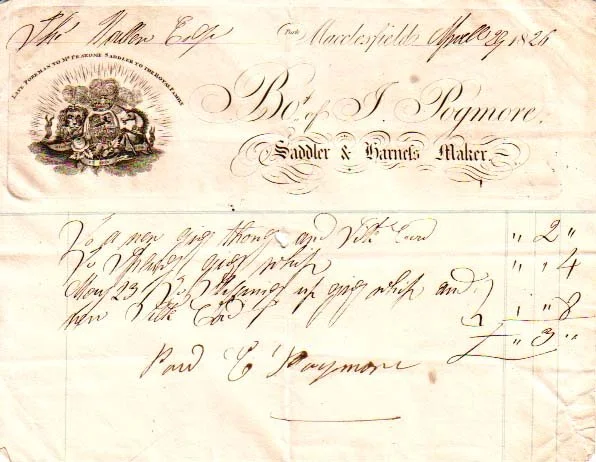 Thos Waller Esqr
Park Macclesfield April 29 1826
LATE FOREMAN TO MR PEAKOME SADDLER TO THE ROYAL FAMILY
Bot. of J. Pogmore,
Saddler & Harneſs Maker.
To a new gig thong and silk Cord " 2 "
To gig whip " " 4
May 23 To up gig whip and
new silk Cord " " 8
£ " 3 "
Paid Pogmore